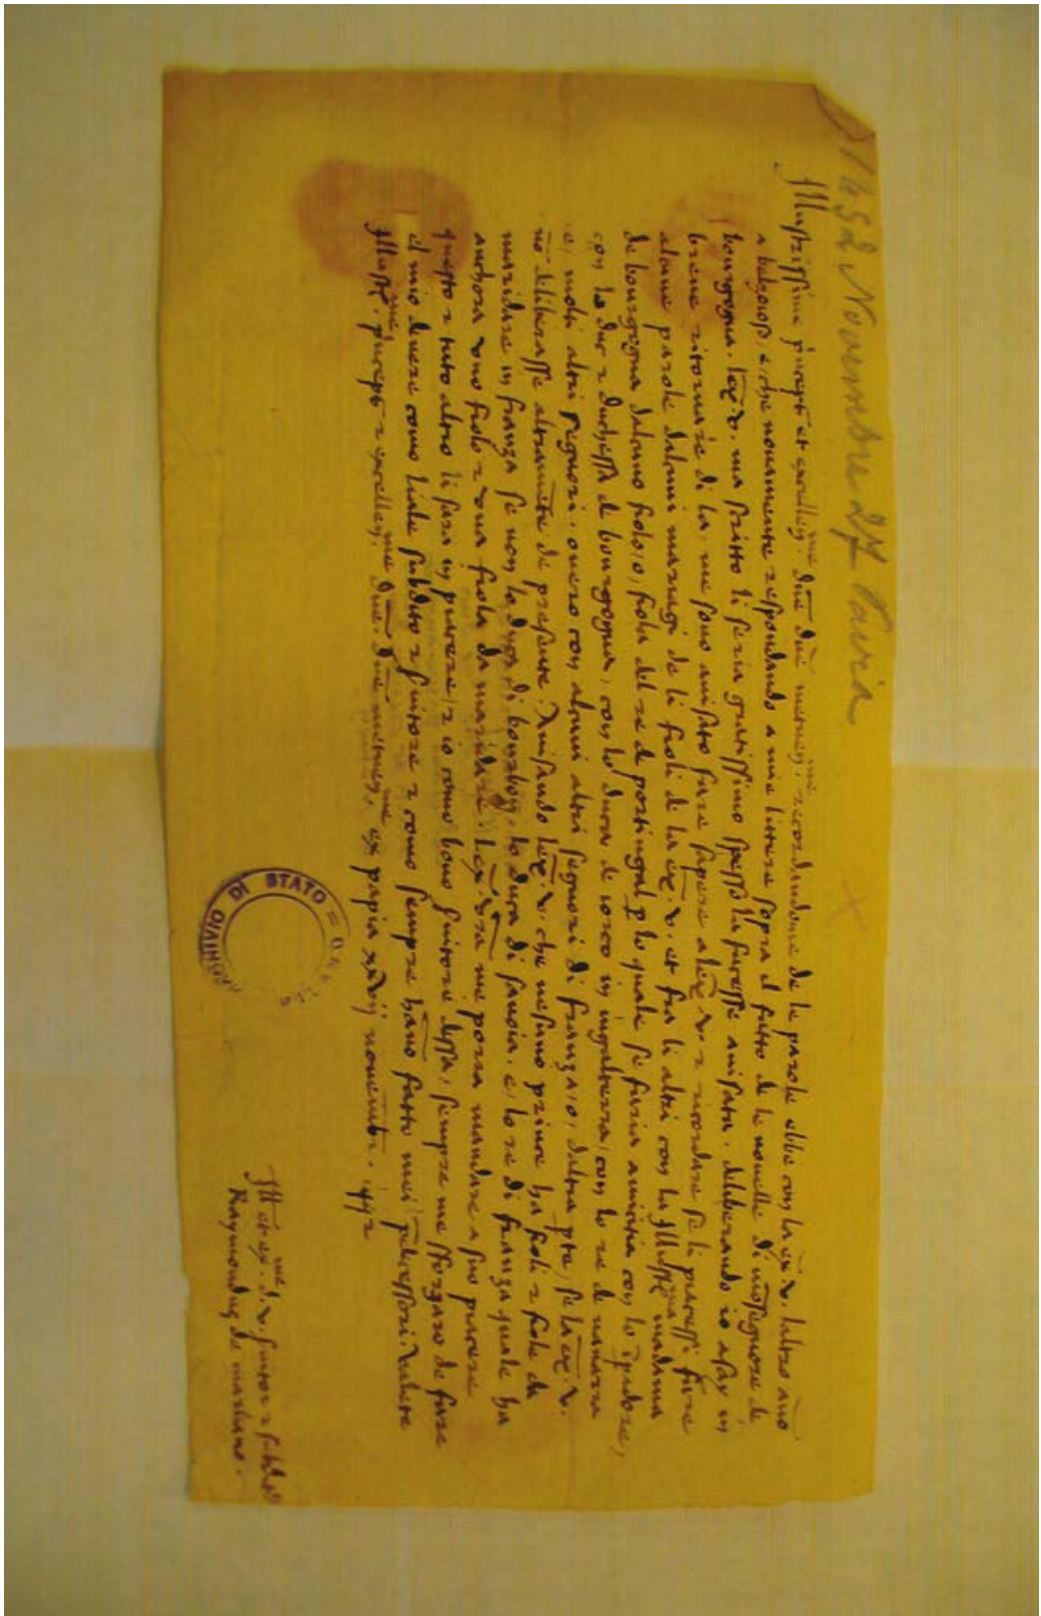 1452 Novembre 27 Pavia
Illustrissime princeps et excellen.me dne dne metuen.me recordandome de le parole ebbe con la ex. v. laltro anno
a belzoioso, e che novamente respondando a mie littere sopra el fatto de le novelle di monsegnore de
bourgogna. lex. v. ma scritto li seria gratissimo spesso la facesse avisata. deliberando io asay in
breve ritornare di la, me sono avisato fare sapere a lex. v. z recordare se li piacessi fare
alcune parole dalcuni mariagi de li fioli de la ex. v. et fra li altri con la Illustrma madama
de bourgogna dalcuno fiolo, o, fiola del re de portingal p lo quale se faria amicitia con lo
con lo duc z duchessa de bourgogna, con lo duca de iorco in ingalterra, con lo re de navarra
e, molti altri segnori, overo con alcuni altri segnori di franza, o, daltra pte, se la ex. v.
no deliberasse altramete de presente. Avisando lex. v. che nesuno prince ha fioli z fiole da
maridare in franza se non lo duca di borbon, lo duca di savoia, e, lo re di franza quale ha
anchora uno fiolo z una fiola da maridare. Lex. vra me porra mandare a suo piacere
questo z tuto altro li sara in piacere, z io como bono servitore dessa, sempre me sforzaro de fare
el mio devere como liale subdito z servitore z como sempre hano fatto miei predecessori. Valete
Illustr.me princeps z excellen.me dne. dne metuen.me, ex papia xxvij novembr. 1452
Ill. et ex. d. v. servitor z subditus
Raymondus de marliano.
ARCHIVIO DI STATO =